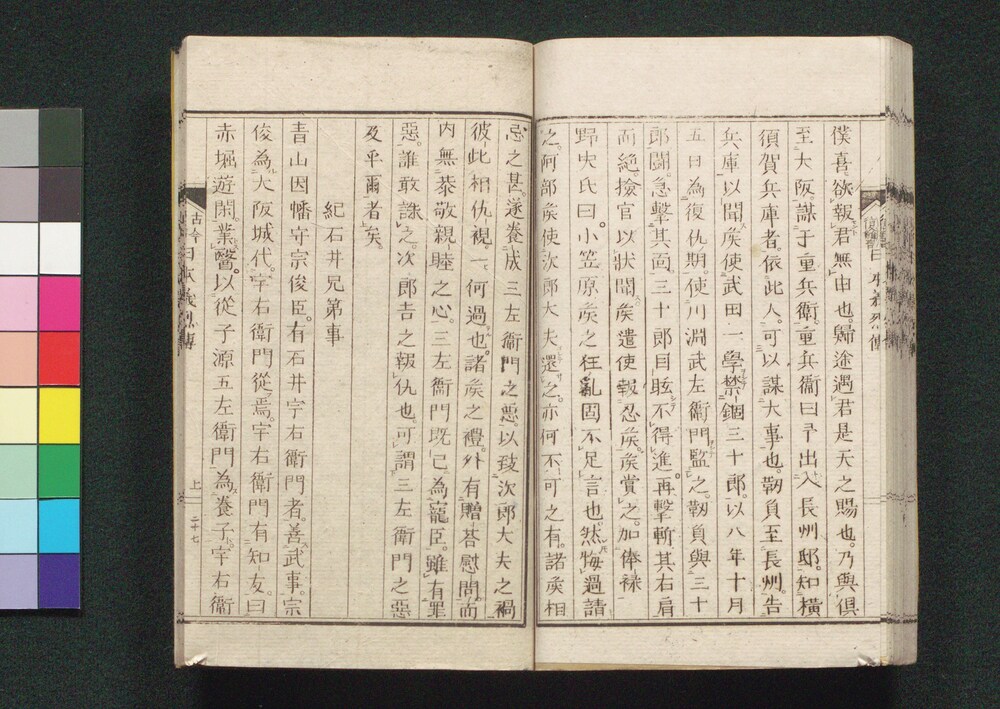 僕喜。欲報君無由也。歸途遇君是天之賜也。乃與俱
至大阪謀于重兵衛。重兵衞曰予出入長州邸。知橫
須賀兵庫者。依此人。可以謀大事也。靭負至長州。告
兵庫以聞矦使武田一學禁錮三十郎。以八年十月
五日為復仇期。使川淵武左衛門監之。靭負與三十
郎鬪。急擊其面三十郎目眩不得進。再擊斬其右肩
而絶。撿官以狀聞矦遣使報忍矦。矦賞之。加俸祿
野史氏曰。小笠原矦之狂亂固不足言也。然悔過請
之。阿部矦使次郎大夫還之。亦何不可之有。諸矦相
忌之甚。遂養成三左衛門之惡。以致次郎大夫之禍
彼此相仇視。一何過也。諸矦之禮。外有贈荅慰問。而
内無恭敬親睦之心。三左衞門既已為寵臣。雖有罪
惡。誰敢誅之。次郎吉之報仇也。可謂三左衛門之惡
及乎爾者矣。
紀石井兄弟事
青山因幡守宗俊臣。有石井宇右衛門者。善武事。宗
俊為大阪城代。宇右衛門從焉。宇右衛門有知友。曰
赤堀遊閑。業醫。以從子源五左衛門為養子。宇右衞
古今日本義烈傳
上
二十七